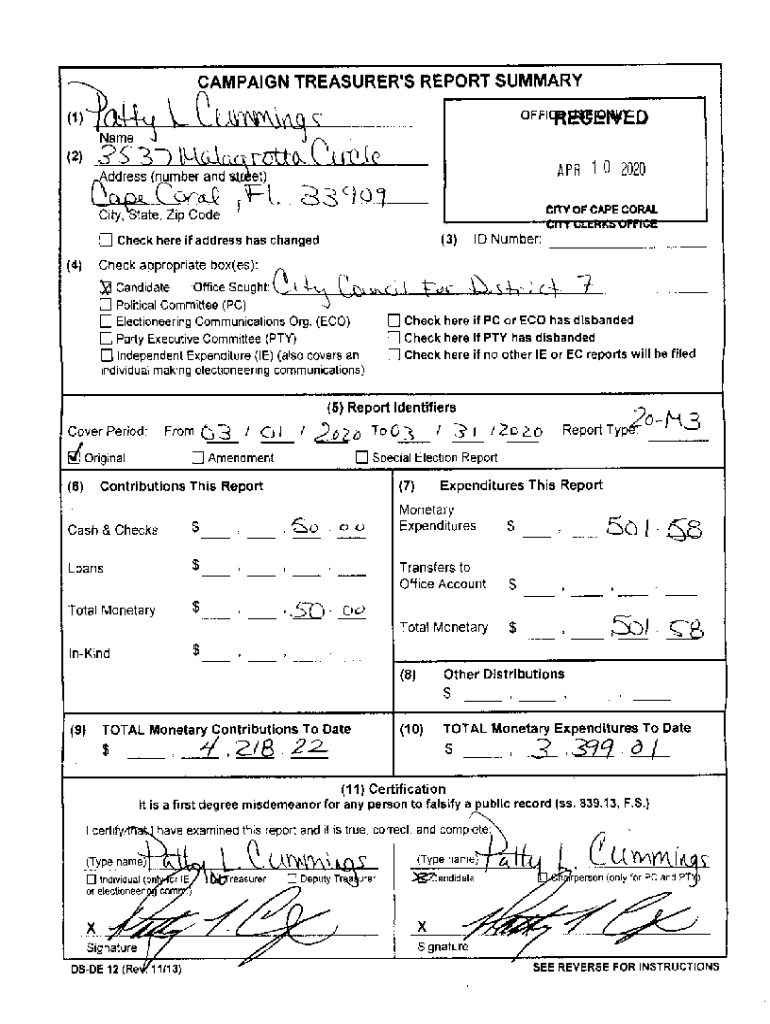 CAMPAIGN TREASURER'S REPORT SUMMARY
(1) Patty L Cummings
Name
OFFICE USE ONLY
RECEIVED
(2) 3537 Malagrotta Circle
Address (number and street)
APR 10 2020
Cape Coral, Fl. 33909
City, State, Zip Code
CITY OF CAPE CORAL
CITY CLERKS OFFICE
Check here if address has changed
(3) ID Number:
(4) Check appropriate box(es):
Candidate Office Sought: City Council For District 7
Political Committee (PC)
Electioneering Communications Org. (ECO)
Check here if PC or ECO has disbanded
Party Executive Committee (PTY)
Check here if PTY has disbanded
Independent Expenditure (IE) (also covers an
individual making electioneering communications)
Check here if no other IE or EC reports will be filed
(5) Report Identifiers
Cover Period: From 03 / 01 / 2020 To 03 / 31 / 2020 Report Type: 20-M3
Original Amendment Special Election Report
(6) Contributions This Report
Cash & Checks $ , , 50 . 00
Loans $ , , .
Total Monetary $ , , 50 . 00
In-Kind $ , , .
(7) Expenditures This Report
Monetary
Expenditures $ , 501 . 58
Transfers to
Office Account $ , , .
Total Monetary $ , 501 . 58
(8) Other Distributions
$ , , .
(9) TOTAL Monetary Contributions To Date
$ , 4 , 218 . 22
(10) TOTAL Monetary Expenditures To Date
$ , 3 , 399 . 01
(11) Certification
It is a first degree misdemeanor for any person to falsify a public record (ss. 839.13, F.S.)
I certify that I have examined this report and it is true, correct, and complete:
(Type name) Patty L. Cummings
Individual (only for IE Treasurer Deputy Treasurer
or electioneering comm.)
X
Signature
(Type name) Patty L. Cummings
Candidate Chairperson (only for PC and PTY)
X
Signature
DS-DE 12 (Rev. 11/13)
SEE REVERSE FOR INSTRUCTIONS